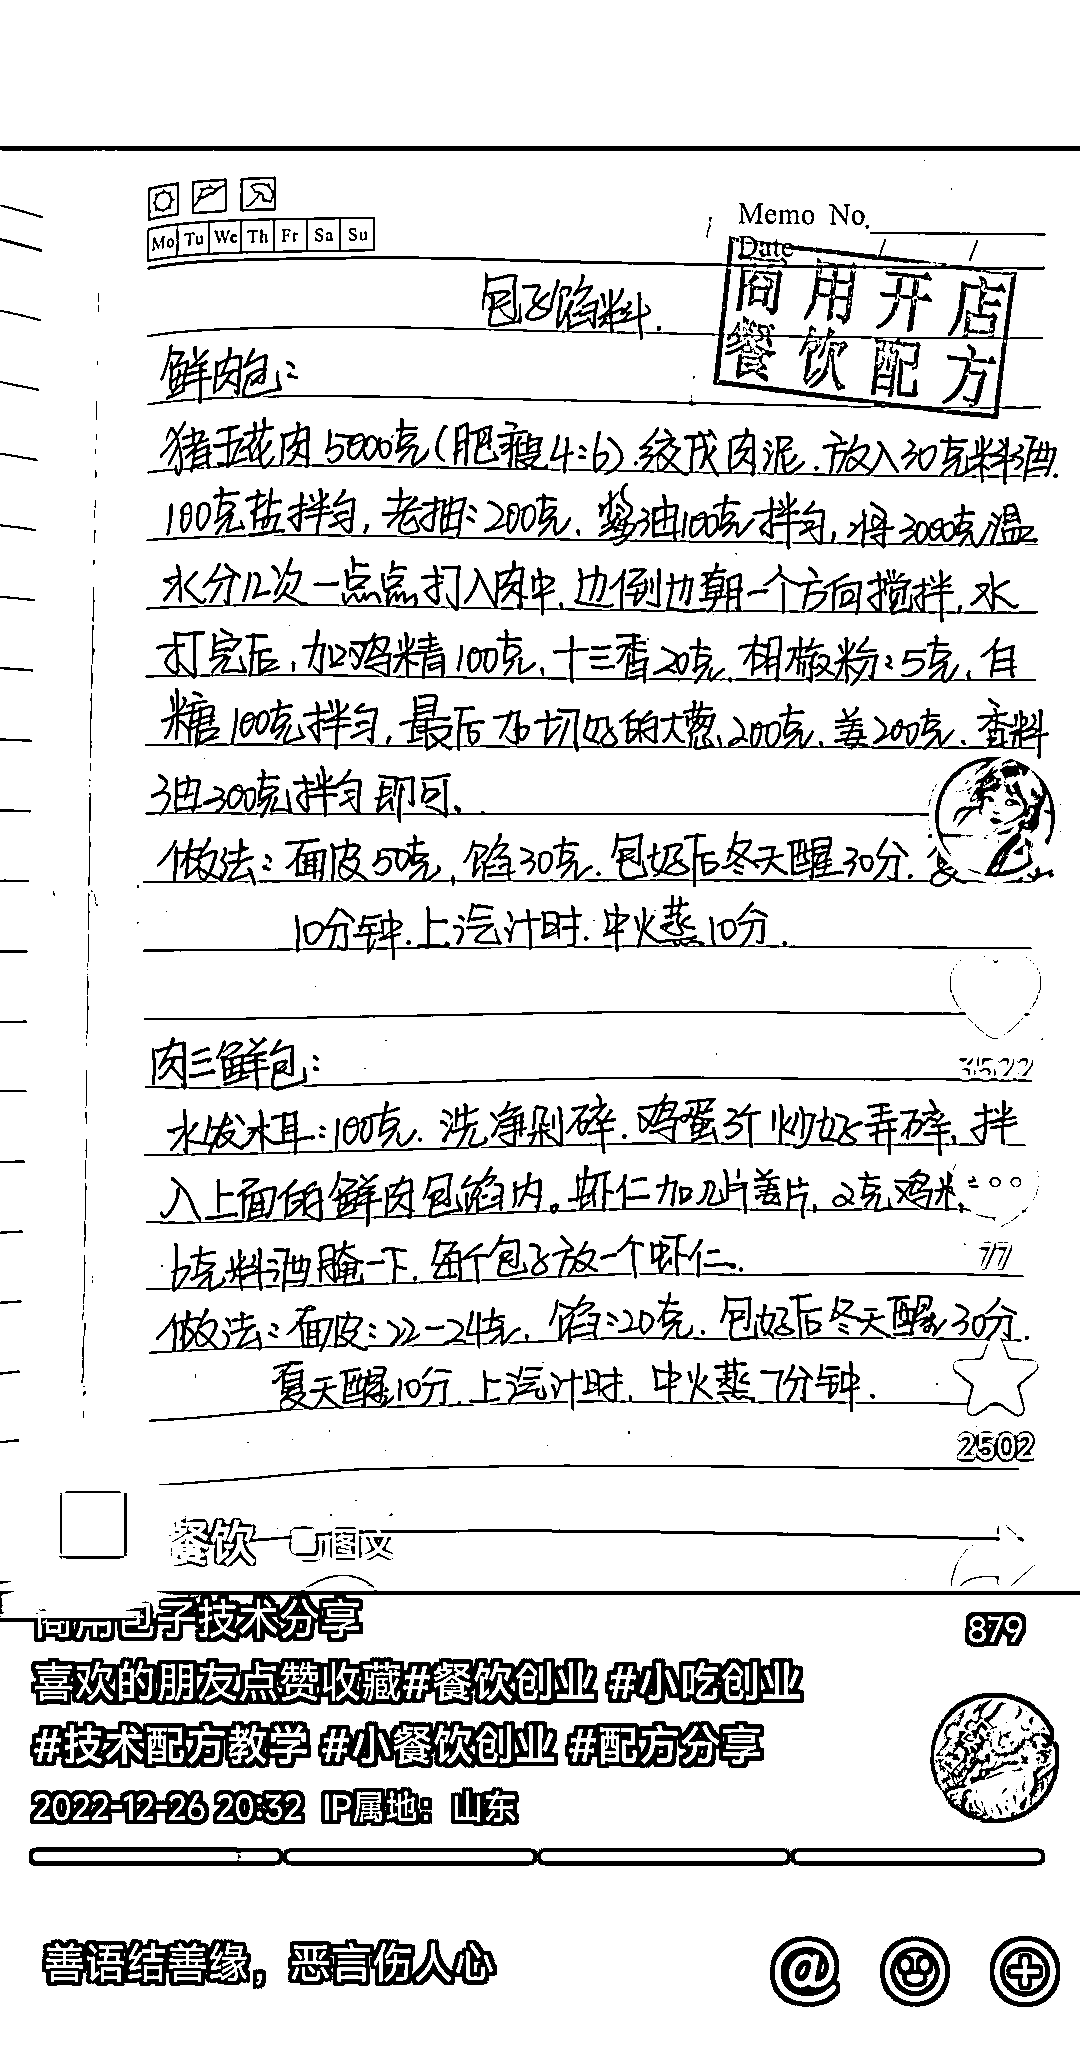 Memo No.
Mo Tu We Th Fr Sa Su
Date / /
商用开店
餐饮配方
包子馅料.
鲜肉包:
猪五花肉5000克(肥瘦4:6).绞成肉泥.放入30克料酒.
100克盐拌匀,老抽:200克.酱油100克拌匀,将3000克温
水分几次一点点打入肉中,边倒边朝一个方向搅拌,水
打完后,加鸡精100克,十三香20克.胡椒粉:5克,白
糖100克拌匀,最后加切好的大葱200克,姜200克.香料
油300克拌匀即可.
做法:面皮50克,馅30克.包好后冬天醒30分.
10分钟.上汽计时.中火蒸10分.
肉三鲜包:
水发木耳:100克.洗净剁碎.鸡蛋3个炒好弄碎,拌
入上面的鲜肉包馅内。虾仁加几片姜片,2克鸡
6克料酒腌一下.每个包子放一个虾仁.
做法:面皮:22-24克,馅:20克.包好后冬天醒30分.
夏天醒10分.上汽计时.中火蒸7分钟.
3522
77
2502
餐饮 图文
商用包子技术分享
879
喜欢的朋友点赞收藏#餐饮创业 #小吃创业
#技术配方教学 #小餐饮创业 #配方分享
2022-12-26 20:32 IP属地：山东
善语结善缘，恶言伤人心
@